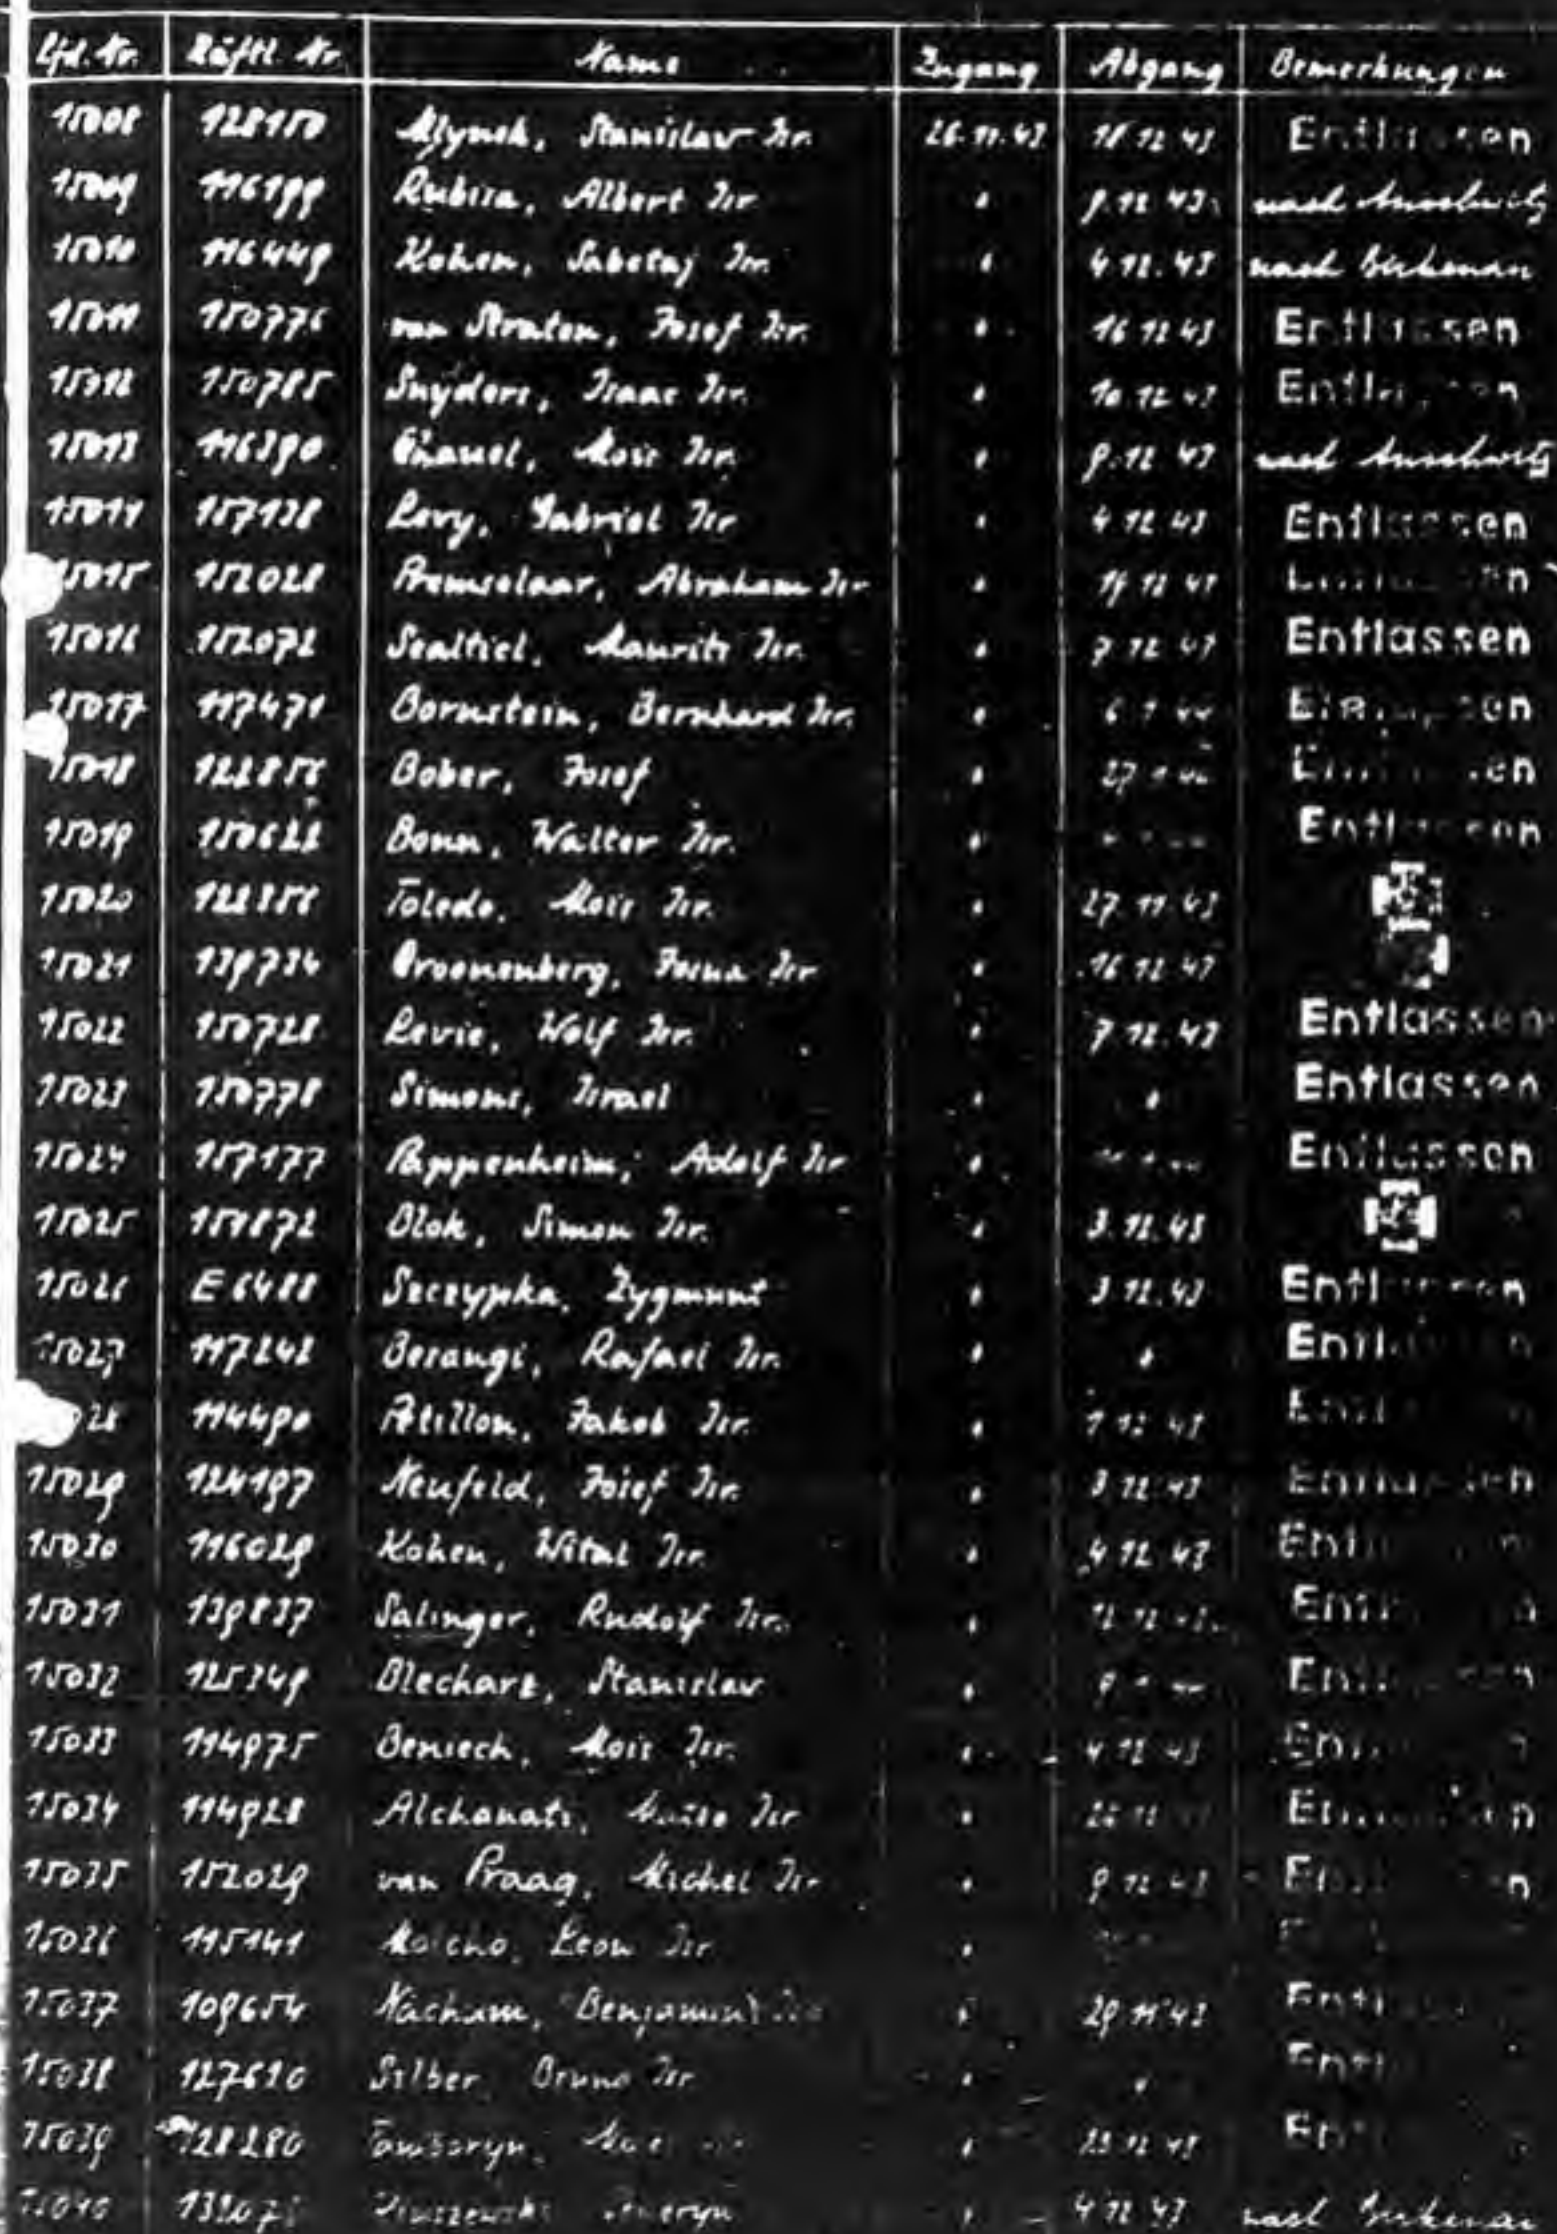 Lfd. Nr. Häftl. Nr. Name Zugang Abgang Bemerkungen
15008 128150 Mlynek, Stanislav Isr. 26.11.43 18.12.43 Entlassen
15009 116199 Rubisa, Albert Isr. " 9.12.43 nach Auschwitz
15010 116449 Kohen, Sabetaj Isr. " 4.12.43 nach Birkenau
15011 150776 van Straten, Josef Isr. " 16.12.43 Entlassen
15012 150785 Snyders, Isaac Isr. " 10.12.43 Entlassen
15013 116390 Mois Isr. " 9.12.43 nach Auschwitz
15014 157138 Levy, Gabriel Isr. " 4.12.43 Entlassen
15015 152028 Premselaar, Abraham Isr. " Entlassen
15016 152072 Sealtiel, Maurits Isr. " 7.12.43 Entlassen
15017 117471 Bornstein, Bernhard Isr. " 6.1.44 Entlassen
15018 Bober, Josef " Entlassen
15019 150622 Bonn, Walter Isr. " Entlassen
15020 Toledo, Mois Isr. " 27.11.43
15021 139734 Groenenberg, Isr. " 16.12.43
15022 150728 Levie, Wolf Isr. " 7.12.43 Entlassen
15023 150778 Simons, Israel " " Entlassen
15024 157177 Pappenheim, Adolf Isr. " Entlassen
15025 151872 Blok, Simon Isr. " 3.12.43
15026 E 6488 Szczypka, Zygmunt " 3.12.43 Entlassen
15027 117242 Besangi, Rafael Isr. " " Entlassen
114490 Petillon, Jakob Isr. " 1.12.43
15029 124197 Neufeld, Josef Isr. " 3.12.43 Entlassen
15030 116029 Kohen, Wital Isr. " 4.12.43
15031 139837 Salinger, Rudolf Isr. "
15032 125349 Blecharz, Stanislav "
15033 114975 Beniech, Mois Isr. " 4.12.43
15034 114928 Alchanati, Isr. "
15035 152029 van Praag, Michel Isr. " 9.12.43
15036 115141 Molcho, Leon Isr. "
15037 109654 Nacham, Benjamin Isr. " 29.11.43
15038 127610 Silber, Bruno Isr. " "
15039 128280 " 23.12.43
15040 " 4.12.43 nach Birkenau